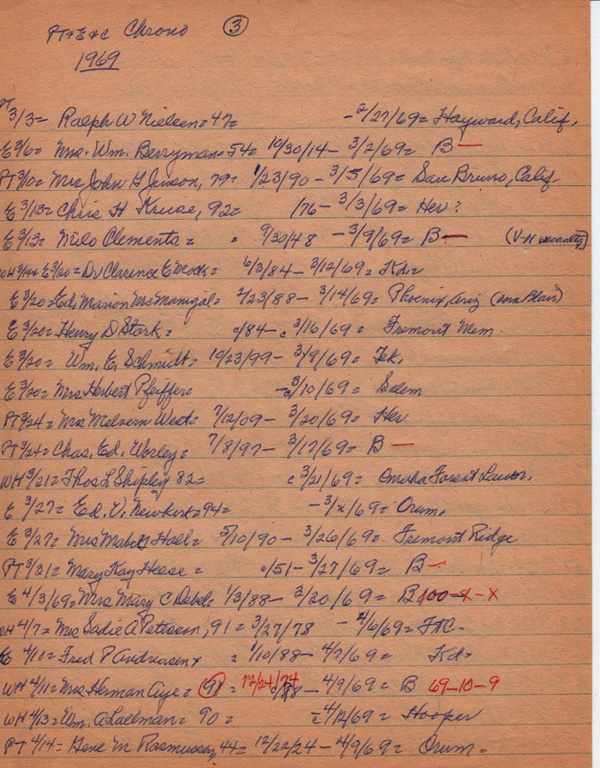 PT+E+C Chrono ③
1969
PT 3/3= Ralph W Nielsen= 47= - 2/27/69= Hayward, Calif.
E 3/6= Mrs. Wm. Berryman= 54= 10/30/14- 3/2/69= B -
PT 3/10= Mrs John H Jenson, 79= 1/23/90 - 3/5/69= San Bruno, Calif
E 3/13= Chris H Kruse, 92= /76- 3/3/69= Her?
E 3/13= Milo Clements= 9/30/48 - 3/9/69= B- (V-N casualty)
WH 3/14+ E 3/20= Dr Clarence E Mock= 6/3/84- 3/12/69= Kd=
E 3/20= Ed. Marion McManigal= 2/23/88- 3/14/69= Phoenix, Ariz (Ann Blair)
E 3/20= Henry D Stork= c/84- c 3/16/69= Fremont Mem.
E 3/20= Wm. E. Schmidt= 10/23/99- 3/9/69= Tek.
E 3/20= Mrs Herbert Pfeiffer= 3/10/69= Salem
PT 3/24= Mrs Melvern West= 7/12/09- 3/20/69= Her
PT 3/24= Chas. Ed. Worley= 7/8/97- 3/17/69= B -
WH 3/21= Thos L Shipley 82= c 3/21/69= Omaha Forest Lawn.
E 3/27= Ed. V. Newkirk= 94= - 3/x/69= Orum.
E 3/27= Mrs Mabel Hall= 5/10/90- 3/26/69= Fremont Ridge
PT 3/31= Mary Kay Heese= c/51- 3/27/69= B -
E 4/3/69= Mrs Mary C Debel= 1/3/88- 3/30/69= B 100-x-x
WH 4/7= Mrs Sadie A Peterson, 91= 3/27/78 - 4/6/69= Ft C.
E 4/10= Fred P Andreasen= 1/10/88- 4/7/69= Kd=
WH 4/11= Mrs Herman Aye= 91= 12/24/74 /78- 4/9/69= B 69-10-9
WH 4/13= Wm. A Lallman= 90= - 4/12/69= Hooper
PT 4/14= Gene M Rasmussen, 44= 12/22/24- 4/9/69= Orum.